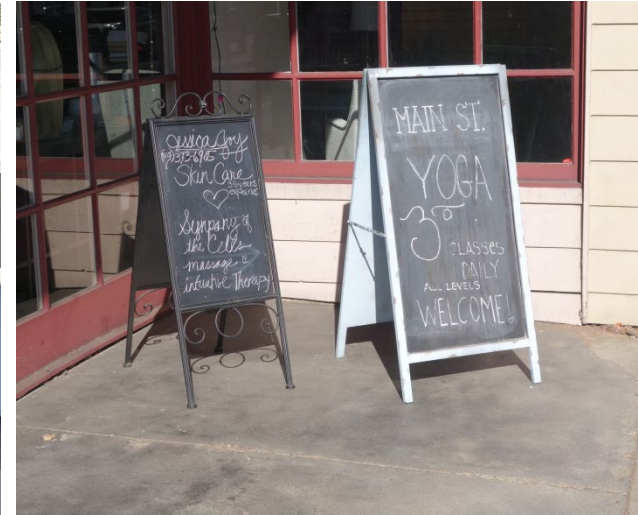 Jessica Joy
Skin Care
Symphony of
the Cells
massage &
intuitive Therapy
MAIN ST.
YOGA
3
CLASSES
DAILY
ALL LEVELS
WELCOME!